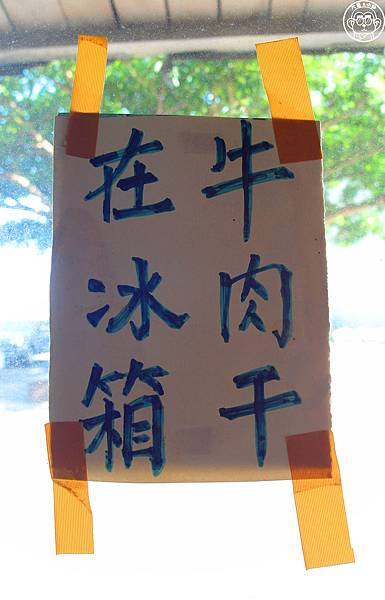 牛肉干
在冰箱